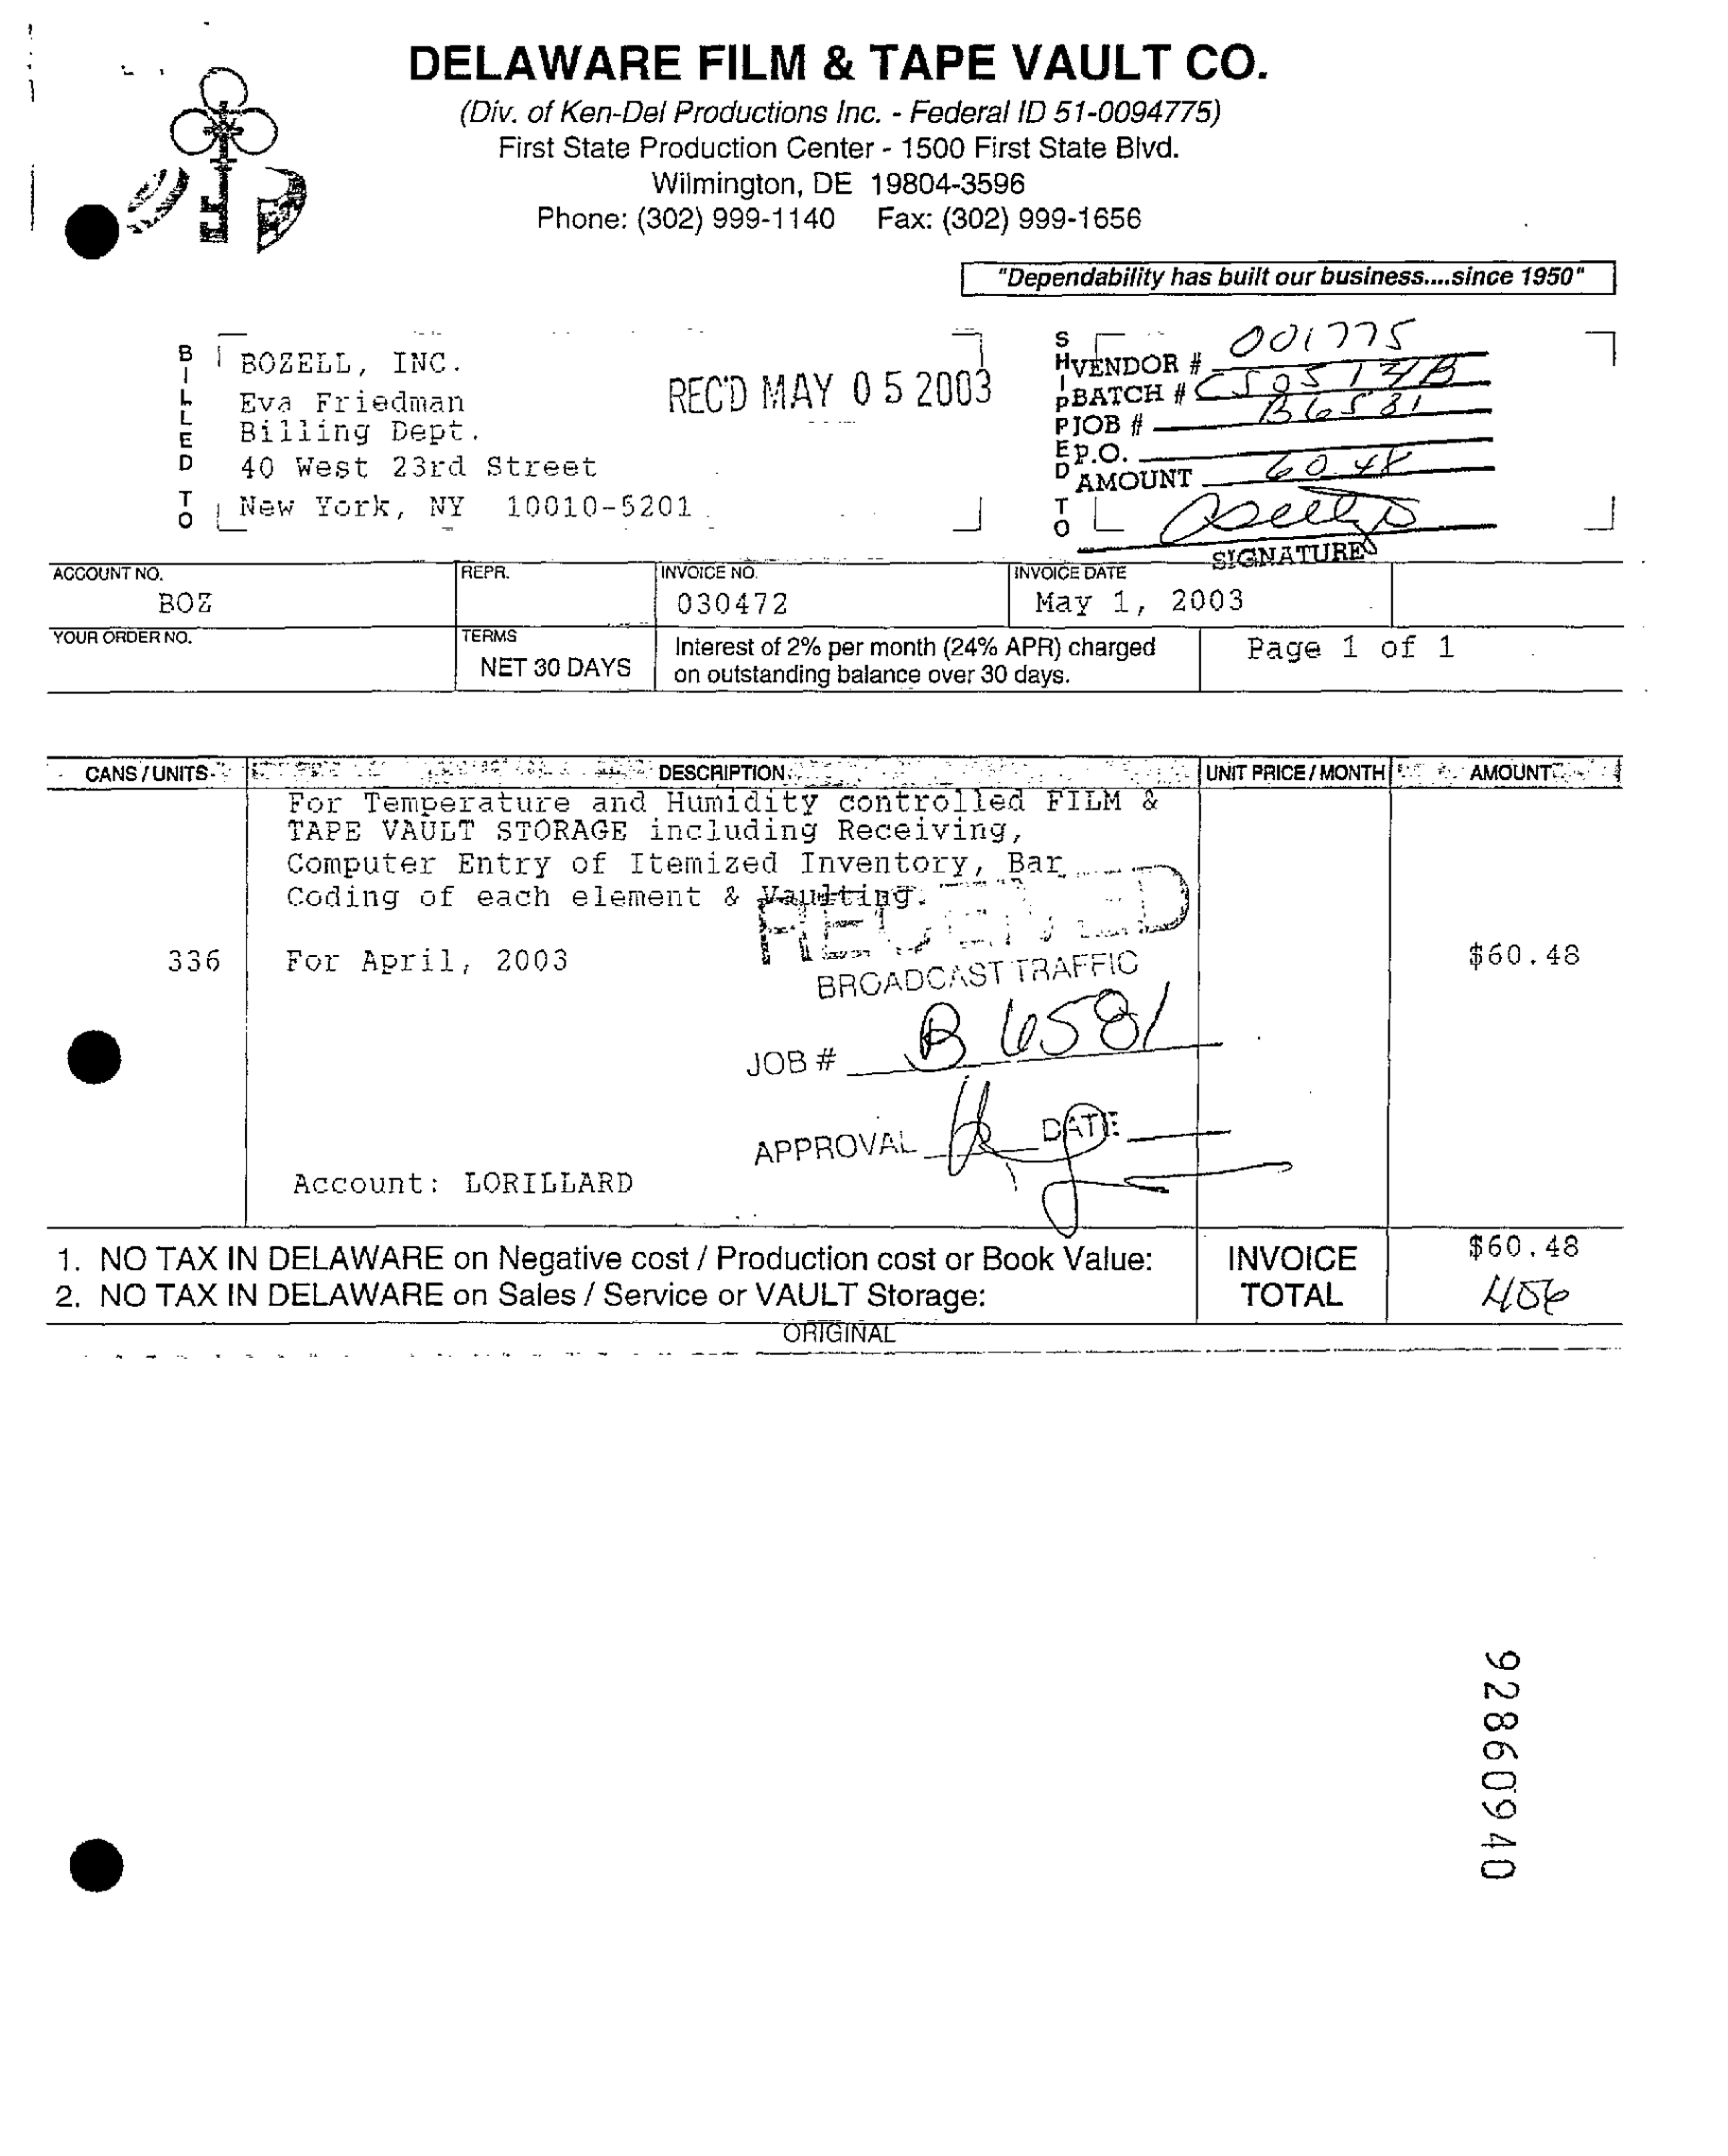 DELAWARE FILM & TAPE VAULT CO.
(Div. of Ken-Del Productions Inc. - Federal ID 51-0094775)
First State Production Center - 1500 First State Blvd.
Wilmington, DE 19804-3596
Phone: (302) 999-1140 Fax: (302) 999-1656
"Dependability has built our business....since 1950"
BILLED TO
BOZELL, INC.
Eva Friedman
Billing Dept.
40 West 23rd Street
New York, NY 10010-5201
REC'D MAY 05 2003
SHIPPED TO
VENDOR # 001775
BATCH #
JOB # B6581
P.O.
AMOUNT 60.48
SIGNATURE
ACCOUNT NO. REPR. INVOICE NO. INVOICE DATE
BOZ 030472 May 1, 2003
YOUR ORDER NO. TERMS
NET 30 DAYS
Interest of 2% per month (24% APR) charged
on outstanding balance over 30 days.
Page 1 of 1
CANS / UNITS DESCRIPTION UNIT PRICE / MONTH AMOUNT
For Temperature and Humidity controlled FILM &
TAPE VAULT STORAGE including Receiving,
Computer Entry of Itemized Inventory, Bar
Coding of each element & Vaulting.
336 For April, 2003 $60.48
RECEIVED
BROADCAST TRAFFIC
JOB # B 6581
APPROVAL DATE
Account: LORILLARD
1. NO TAX IN DELAWARE on Negative cost / Production cost or Book Value:
2. NO TAX IN DELAWARE on Sales / Service or VAULT Storage:
INVOICE TOTAL
$60.48
406
ORIGINAL
92860940